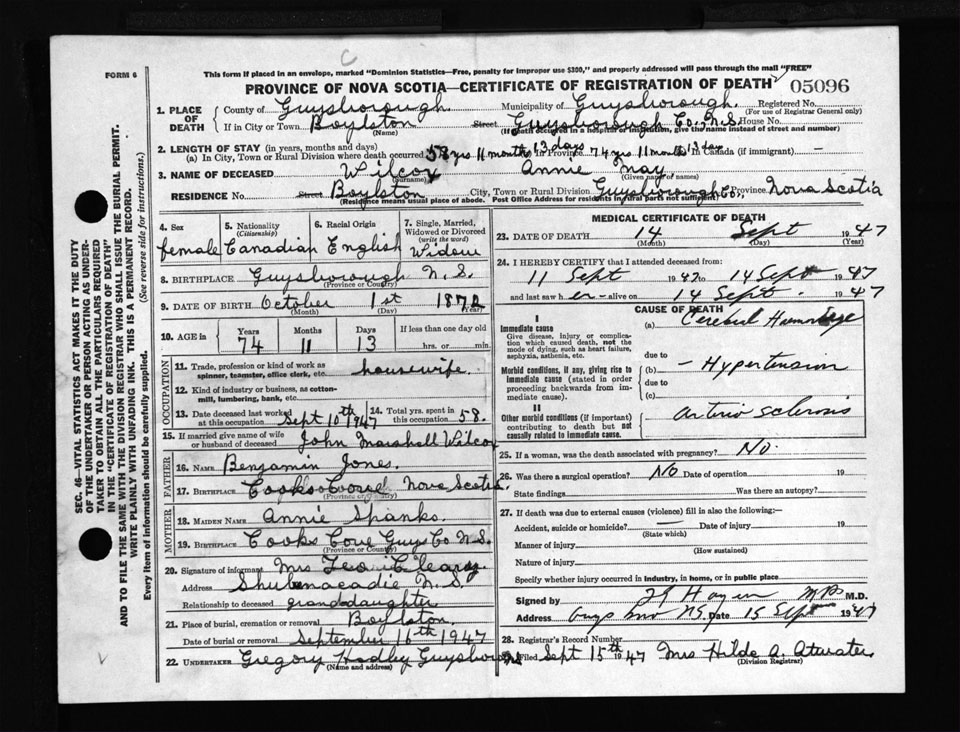 C
FORM 6
This form if placed in an envelope, marked "Dominion Statistics—Free, penalty for improper use $300," and properly addressed will pass through the mail "FREE"
PROVINCE OF NOVA SCOTIA—CERTIFICATE OF REGISTRATION OF DEATH 05096
SEC. 46—VITAL STATISTICS ACT MAKES IT THE DUTY
OF THE UNDERTAKER OR PERSON ACTING AS UNDER-
TAKER TO OBTAIN ALL THE PARTICULARS REQUIRED
IN THE "CERTIFICATE OF REGISTRATION OF DEATH"
AND TO FILE THE SAME WITH THE DIVISION REGISTRAR WHO SHALL ISSUE THE BURIAL PERMIT.
WRITE PLAINLY WITH UNFADING INK. THIS IS A PERMANENT RECORD.
Every item of information should be carefully supplied. (See reverse side for instructions.)
1. PLACE OF DEATH County of Guysborough. Municipality of Guysborough. Registered No.
(For use of Registrar General only)
If in City or Town Boylston Street Guysborough Co., N.S. House No.
(Name) (If death occurred in a hospital or institution, give the name instead of street and number)
2. LENGTH OF STAY (in years, months and days)
(a) In City, Town or Rural Division where death occurred 58 yrs 11 months 13 days In Province 74 yrs 11 month 13 day In Canada (if immigrant) —
3. NAME OF DECEASED Wilcox Annie May
(Surname) (Given name or names)
RESIDENCE No. Street Boylston City, Town or Rural Division Guysborough Co., Province Nova Scotia
(Residence means usual place of abode. Post Office Address for residents in rural parts not sufficient)
4. Sex female
5. Nationality (Citizenship) Canadian
6. Racial Origin English
7. Single, Married, Widowed or Divorced (write the word) Widow
8. BIRTHPLACE Guysborough N.S.
(Province or Country)
9. DATE OF BIRTH October 1st 1872
(Month) (Day) (Year)
10. AGE in Years 74 Months 11 Days 13 If less than one day old hrs. or min.
OCCUPATION
11. Trade, profession or kind of work as spinner, teamster, office clerk, etc. housewife.
12. Kind of industry or business, as cotton-mill, lumbering, bank, etc.
13. Date deceased last worked at this occupation Sept 10th 1947 14. Total yrs. spent in this occupation 58.
15. If married give name of wife or husband of deceased John Marshall Wilcox
FATHER
16. NAME Benjamin Jones.
17. BIRTHPLACE Cooks Cove Nova Scotia
(Province or Country)
MOTHER
18. MAIDEN NAME Annie Spanks.
19. BIRTHPLACE Cooks Cove Guys Co N.S.
(Province or Country)
20. Signature of informant Mrs
Address Shubenacadie N.S.
Relationship to deceased granddaughter
21. Place of burial, cremation or removal Boylston.
Date of burial or removal September 16th 1947
22. UNDERTAKER Gregory Hadley Guysboro N.S.
MEDICAL CERTIFICATE OF DEATH
23. DATE OF DEATH 14 Sept 1947
(Month) (Day) (Year)
24. I HEREBY CERTIFY that I attended deceased from:
11 Sept 1947 to 14 Sept 1947
and last saw her alive on 14 Sept. 1947
CAUSE OF DEATH
I
Immediate cause (a) Cerebral Hemorrhage
Give disease, injury or complication which caused death, not the mode of dying, such as heart failure, asphyxia, asthenia, etc.
due to
Morbid conditions, if any, giving rise to immediate cause (stated in order proceeding backwards from immediate cause).
(b) — Hypertension
due to
(c)
II
Other morbid conditions (if important) contributing to death but not causally related to immediate cause.
Arterio sclerosis
25. If a woman, was the death associated with pregnancy? No.
26. Was there a surgical operation? No Date of operation 19
State findings Was there an autopsy?
27. If death was due to external causes (violence) fill in also the following:—
Accident, suicide or homicide? — Date of injury 19
(State which)
Manner of injury
(How sustained)
Nature of injury
Specify whether injury occurred in industry, in home, or in public place
Signed by M.D.
Address Guysboro N.S. Date 15 Sept 1947
28. Registrar's Record Number
Filed Sept 15th 1947 Mrs Hilda A. Atwater
(Division Registrar)